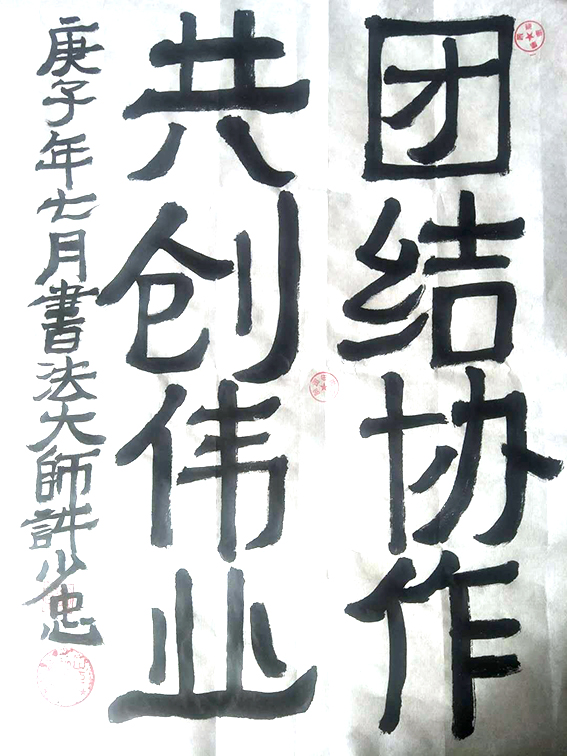 团结协作
共创伟业
庚子年七月書法大師許少忠